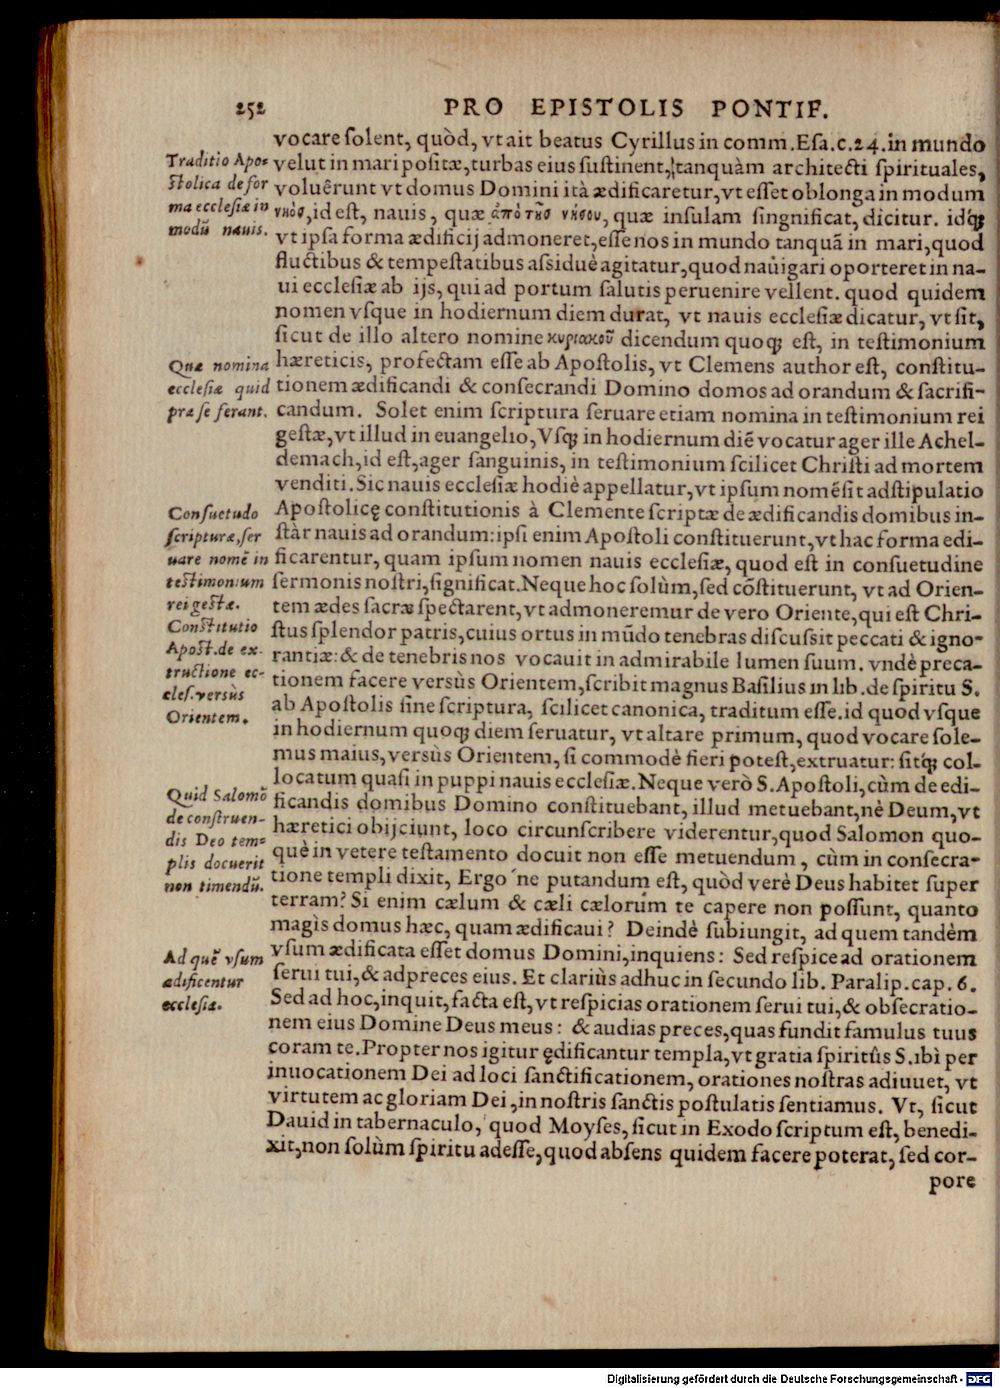 252 PRO EPISTOLIS PONTIF.
vocare ſolent, quòd, vt ait beatus Cyrillus in comm. Eſa.c.24. in mundo
velut in mari poſitæ, turbas eius ſuſtinent, tanquàm architecti ſpirituales,
voluêrunt vt domus Domini ità ædificaretur, vt eſſet oblonga in modum
νηὸσ, id eſt, nauis, quæ ἀπὸ τῆσ νήσου, quæ inſulam ſingnificat, dicitur. idq́;
vt ipſa forma ædificij admoneret, eſſe nos in mundo tanquã in mari, quod
fluctibus & tempeſtatibus aſsiduè agitatur, quod nauigari oporteret in na-
ui eccleſiæ ab ijs, qui ad portum ſalutis peruenire vellent. quod quidem
nomen vſque in hodiernum diem durat, vt nauis eccleſiæ dicatur, vt ſit,
ſicut de illo altero nomine κυριακοῦ dicendum quoq; eſt, in teſtimonium
hæreticis, profectam eſſe ab Apoſtolis, vt Clemens author eſt, conſtitu-
tionem ædificandi & conſecrandi Domino domos ad orandum & ſacrifi-
candum. Solet enim ſcriptura ſeruare etiam nomina in teſtimonium rei
geſtæ, vt illud in euangelio, Vſq; in hodiernum diẽ vocatur ager ille Achel-
demach, id eſt, ager ſanguinis, in teſtimonium ſcilicet Chriſti ad mortem
venditi. Sic nauis eccleſiæ hodiè appellatur, vt ipſum nomẽ ſit adſtipulatio
Apoſtolicę conſtitutionis à Clemente ſcriptæ de ædificandis domibus in-
ſtàr nauis ad orandum: ipſi enim Apoſtoli conſtituerunt, vt hac forma edi-
ficarentur, quam ipſum nomen nauis eccleſiæ, quod eſt in conſuetudine
ſermonis noſtri, ſignificat. Neque hoc ſolùm, ſed cõſtituerunt, vt ad Orien-
tem ædes ſacræ ſpectarent, vt admoneremur de vero Oriente, qui eſt Chri-
ſtus ſplendor patris, cuius ortus in mũdo tenebras diſcuſsit peccati & igno-
rantiæ: & de tenebris nos vocauit in admirabile lumen ſuum. vndè preca-
tionem facere versùs Orientem, ſcribit magnus Baſilius in lib. de ſpiritu S.
ab Apoſtolis ſine ſcriptura, ſcilicet canonica, traditum eſſe. id quod vſque
in hodiernum quoq; diem ſeruatur, vt altare primum, quod vocare ſole-
mus maius, versùs Orientem, ſi commodè fieri poteſt, extruatur: ſitq́; col-
locatum quaſi in puppi nauis eccleſiæ. Neque verò S. Apoſtoli, cùm de edi-
ficandis domibus Domino conſtituebant, illud metuebant, nè Deum, vt
hæretici obijciunt, loco circunſcribere viderentur, quod Salomon quo-
què in vetere teſtamento docuit non eſſe metuendum, cùm in conſecra-
tione templi dixit, Ergo'ne putandum eſt, quòd verè Deus habitet ſuper
terram? Si enim cælum & cæli cælorum te capere non poſſunt, quanto
magìs domus hæc, quam ædificaui? Deindè ſubiungit, ad quem tandèm
vſum ædificata eſſet domus Domini, inquiens: Sed reſpice ad orationem
ſerui tui, & ad preces eius. Et clariùs adhuc in ſecundo lib. Paralip. cap. 6.
Sed ad hoc, inquit, facta eſt, vt reſpicias orationem ſerui tui, & obſecratio-
nem eius Domine Deus meus: & audias preces, quas fundit famulus tuus
coram te. Propter nos igitur ędificantur templa, vt gratia ſpiritûs S. ibì per
inuocationem Dei ad loci ſanctificationem, orationes noſtras adiuuet, vt
virtutem ac gloriam Dei, in noſtris ſanctis poſtulatis ſentiamus. Vt, ſicut
Dauid in tabernaculo, quod Moyſes, ſicut in Exodo ſcriptum eſt, benedi-
xit, non ſolùm ſpiritu adeſſe, quod abſens quidem facere poterat, ſed cor-
pore
Traditio Apo-
ſtolica de for
ma eccleſiæ in
modũ nauis.
Quæ nomina
eccleſiæ quid
præ ſe ferant.
Conſuetudo
ſcripturæ, ſer
uare nomẽ in
teſtimonium
rei geſtæ.
Conſtitutio
Apoſt. de ex-
tructione ec-
cleſ. versùs
Orientem.
Quid Salomõ
de conſtruen-
dis Deo tem-
plis docuerit
non timendũ.
Ad quẽ vſum
ædificentur
eccleſiæ.
Digitalisierung gefördert durch die Deutsche Forschungsgemeinschaft - DFG